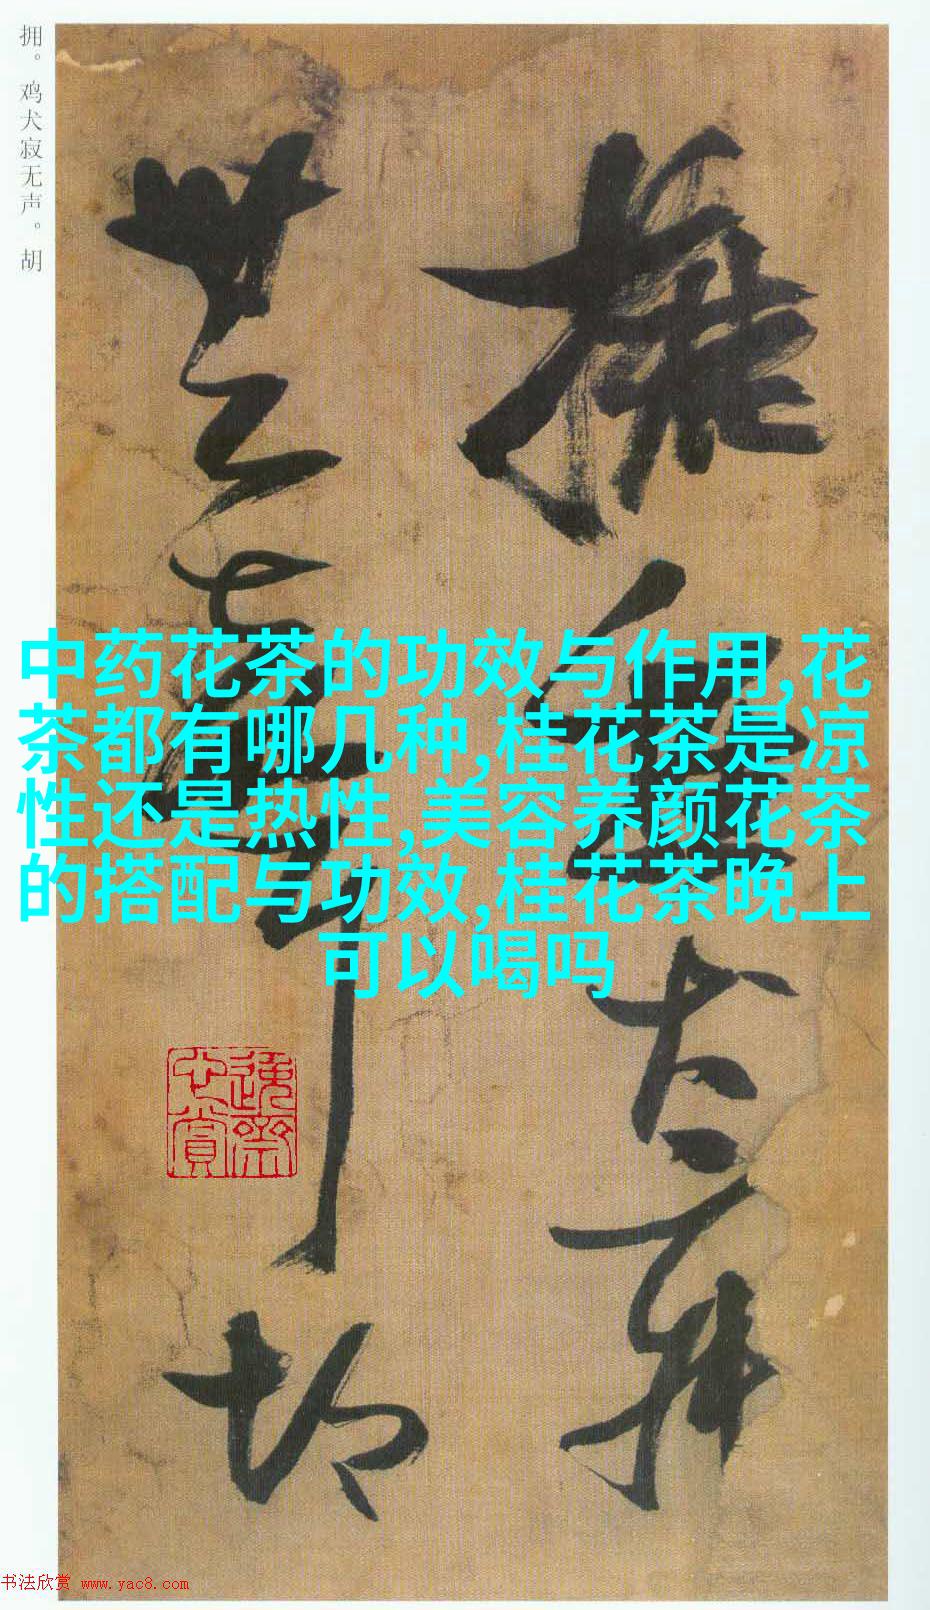 拥。鸡犬寂无声。胡
中药花茶的功效与作用,花
茶都有哪几种,桂花茶是凉
性还是热性,美容养颜花茶
的搭配与功效,桂花茶晚上
可以喝吗
拥鸡犬寂
无声胡
书法欣赏 www.yac8.com